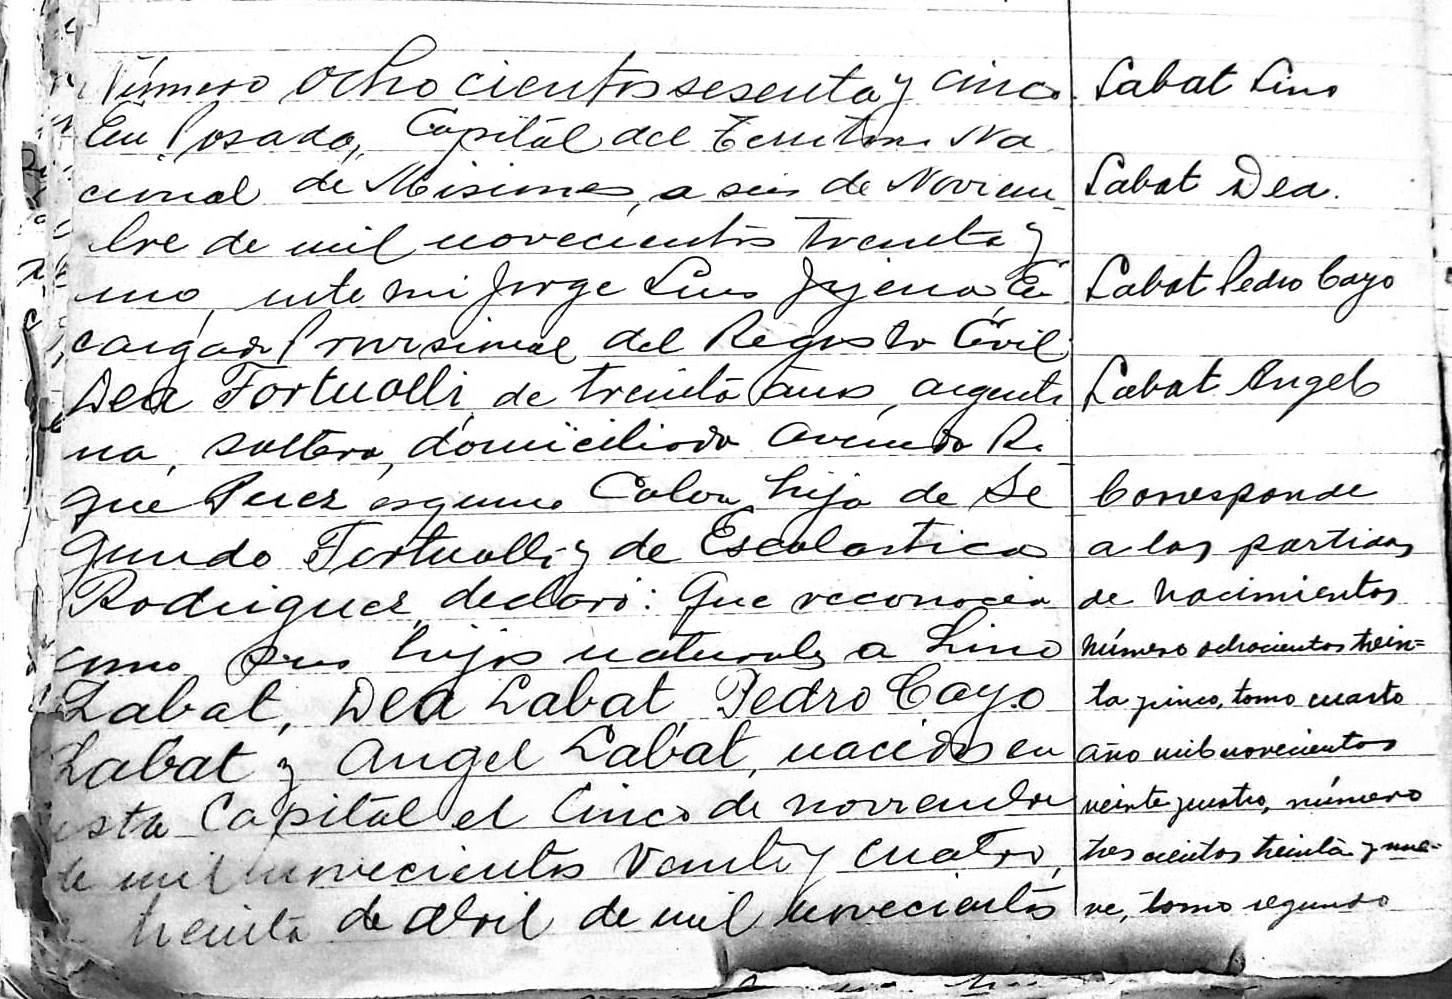 Número ochocientos sesenta y cinco
En Posadas, Capital del Territorio Na
cional de Misiones, a seis de Noviem-
bre de mil novecientos treinta y
uno, ante mi Jorge Luis En
cargado Provisional del Registro Civil
Dea Fortualli, de treinta años, argenti
na, soltera, domiciliada Avenida Ro
que Perez esquina Colon, hija de Se
gundo Fortualli y de Escolastica
Rodriguez, declaró: Que reconocia
como sus hijos naturales a Lino
Labat, Dea Labat, Pedro Cayo
Labat y Angel Labat, nacidos en
esta Capital el cinco de noviembre
de mil novecientos veinte y cuatro,
treinta de abril de mil novecientos
Labat Lino
Labat Dea.
Labat Pedro Cayo
Labat Angel
Corresponde
a las partidas
de nacimientos
número ochocientos trein=
ta y cinco, tomo cuarto
año mil novecientos
veinte y cuatro, número
tres cientos treinta y nue-
ve, tomo segundo